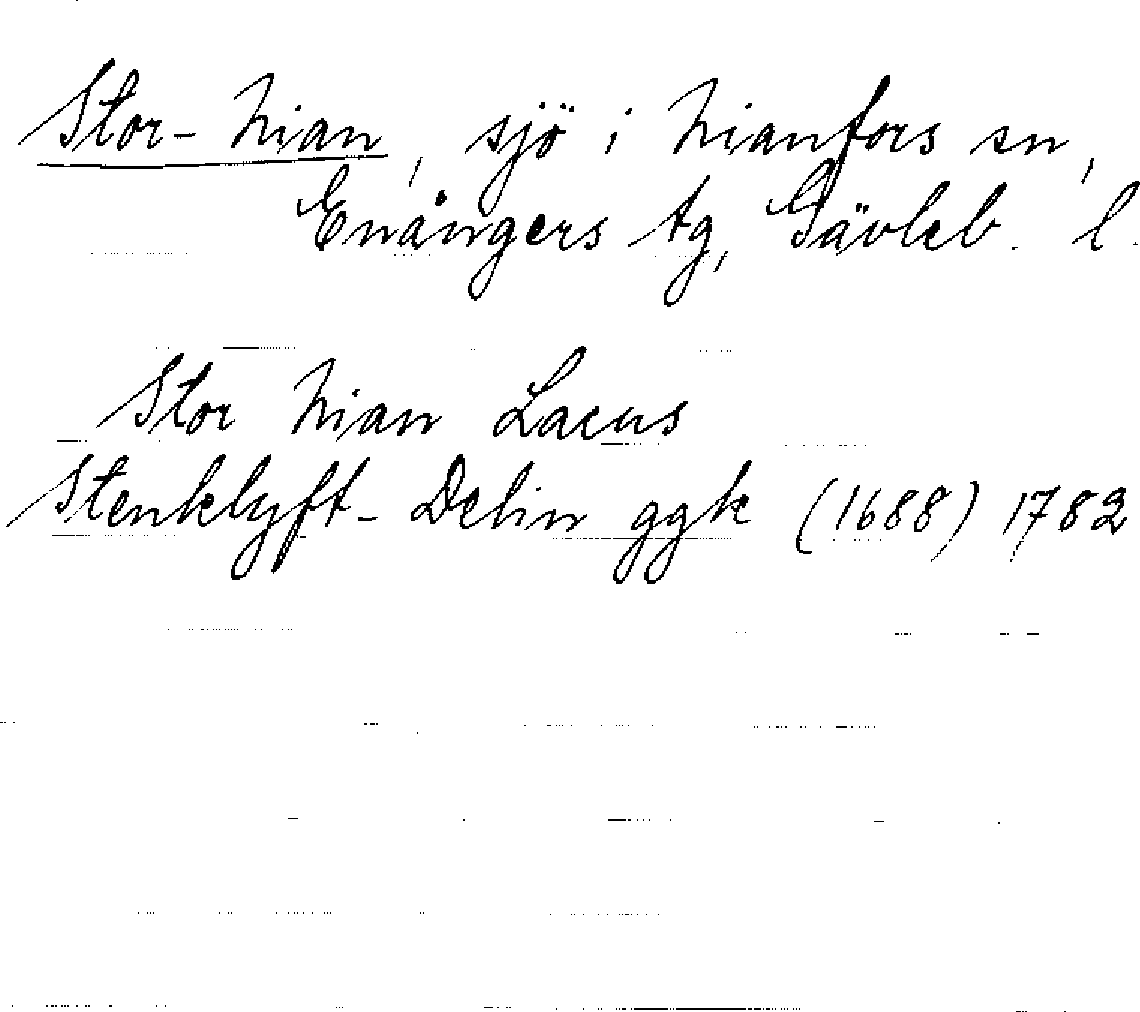 Stor-Nian, sjö i Nianfors sn,
Enångers tg, Gävleb. l.
Stor Nian Lacus
Stenklyft- Delin ggk (1688) 1782